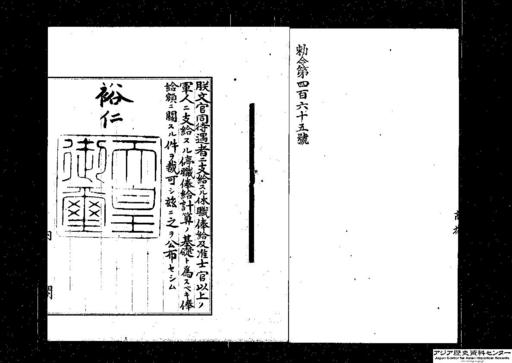 勅令第四百六十五號
朕文官同待遇者ニ支給スル休職俸給及准士官以上ノ
軍人ニ支給スル停職俸給計算ノ基礎ト為スヘキ俸
給額ニ關スル件ヲ裁可シ玆ニ之ヲ公布セシム
裕仁
天皇
御璽
内閣
アジア歴史資料センター
Japan Center for Asian Historical Records